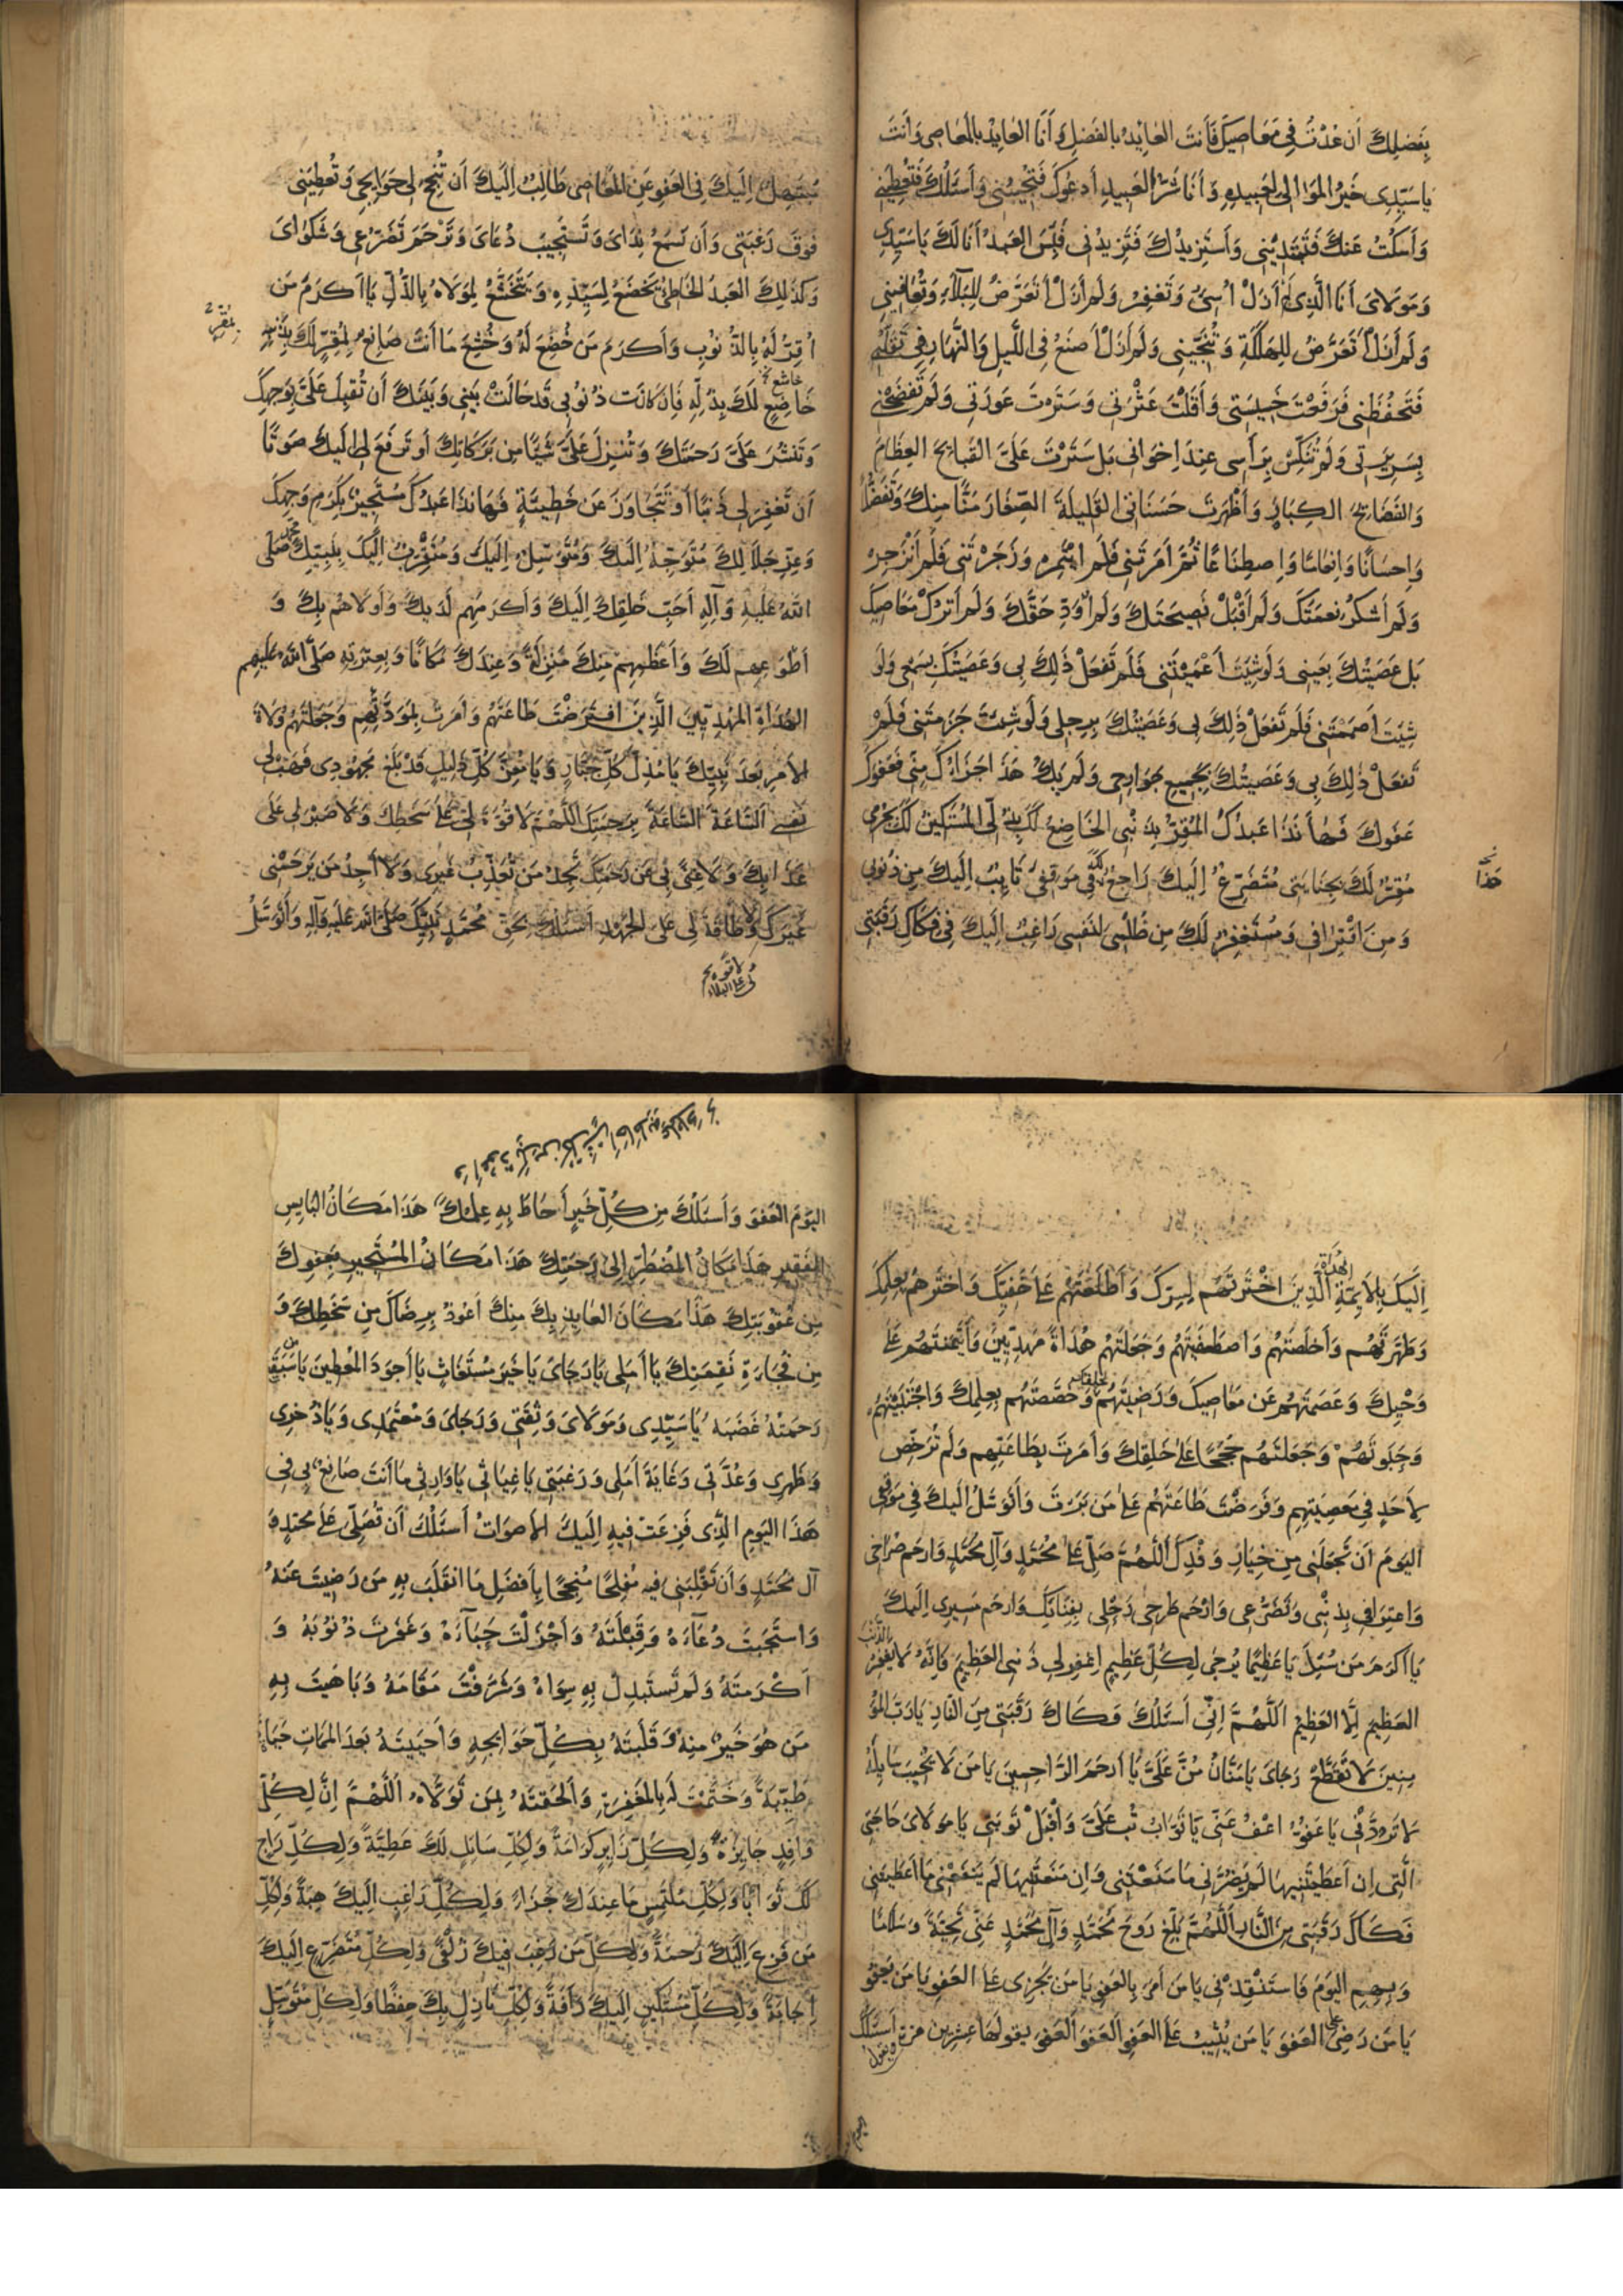 بِفَضلِكَ أَن عُدْتُ فِي مَعَاصِيكَ فَأَنتَ العَائِدُ بِالفَضلِ وَ أَنَا العَايِدُ بِالمَعَاصِي وَأَنتَ
يَا سَيِّدِي خَيرُ المَوَالِي لِعَبِيدِهِ وَ أَنَا شَرُّ العَبِيدِ أَدعُوكَ فَتُجِيبُنِي وَ أَسئَلُكَ فَتُعطِينِي
وَ أَسكُتُ عَنكَ فَتَبتَدِئُنِي وَ أَستَزِيدُكَ فَتَزِيدُنِي فَبِئسَ العَبدُ أَنَا لَكَ يَا سَيِّدِي
وَ مَولَايَ أَنَا الَّذِي لَم أَزَلْ أُسِيءُ وَ تَغفِرُ وَ لَم أَزَلْ أَتَعَرَّضُ لِلبَلَاءِ وَ تُعَافِينِي
وَ لَم أَزَلْ أَتَعَرَّضُ لِلهَلَكَةِ وَ تُنجِينِي وَ لَم أَزَلْ أَضيَعُ فِي اللَّيلِ وَالنَّهَارِ فِي تَقَلُّبِي
فَتَحفَظُنِي فَرَفَعْتَ خَسِيسَتِي وَ أَقَلْتَ عَثْرَتِي وَ سَتَرتَ عَورَتِي وَ لَم تَفضَحْنِي
بِسَرِيرَتِي وَ لَم تُنَكِّسْ بِرَأسِي عِندَ اِخوَانِي بَل سَتَرْتَ عَلَيَّ القَبَائِحَ العِظَامَ
وَ الفَضَائِحَ الكِبَارَ وَ أَظهَرتَ حَسَنَاتِيَ القَلِيلَةَ الصِّغَارَ مَنًّا مِنكَ وَ تَفَضُّلًا
وَ اِحسَانًا وَ اِنعَامًا وَ اِصطِنَاعًا ثُمَّ أَمَرتَنِي فَلَم أَئتَمِرْ وَ زَجَرْتَنِي فَلَم أَنزَجِرْ
وَ لَم أَشكُرْ نِعمَتَكَ وَ لَم أَقبَلْ نَصِيحَتَكَ وَ لَم أُؤَدِّ حَقَّكَ وَ لَم أَترُكْ مَعَاصِيكَ
بَل عَصَيتُكَ بِعَينِي وَ لَو شِئتَ أَعْمَيتَنِي فَلَم تَفعَلْ ذَلِكَ بِي وَ عَصَيتُكَ بِسَمعِي وَ لَو
شِئتَ أَصمَمتَنِي فَلَم تَفعَلْ ذَلِكَ بِي وَ عَصَيتُكَ بِرِجلِي وَ لَو شِئتَ جَذَمتَنِي فَلَم
تَفعَلْ ذَلِكَ بِي وَ عَصَيتُكَ بِجَمِيعِ جَوَارِحِي وَ لَم يَكُ هَذَا جَزَاؤُكَ مِنِّي فَعَفوَكَ
عَفوَكَ فَهَا أَنَذَا عَبدُكَ المُقِرُّ بِذَنْبِي الخَاضِعُ لَكَ بِذُلِّي المُستَكِينُ لَكَ بِجُرمِي
مُقِرٌّ لَكَ بِجِنَايَتِي مُتَضَرِّعٌ إِلَيكَ رَاجٍ لَكَ فِي مَوقِفِي تَايِبٌ اِلَيكَ مِن ذُنُوبِي
وَ مِن اقتِرَافِي وَ مُستَغفِرٌ لَكَ مِن ظُلمِي لِنَفسِي رَاغِبٌ اِلَيكَ فِي فِكَاكِ رَقَبَتِي
هَذَا
مُبتَهِلٌ اِلَيكَ فِي العَفوِ عَنِ المَعَاصِي طَالِبٌ اِلَيكَ أَن تُنجِحَ لِي حَوَايِجِي وَ تُعطِيَنِي
فَوقَ رَغبَتِي وَ أَن تَسمَعَ نِدَايَ وَ تَستَجِيبَ دُعَايَ وَ تَرْحَمَ تَضَرُّعِي وَ شَكوَايَ
وَ كَذَلِكَ العَبدُ الخَاطِئُ يَخضَعُ لِسَيِّدِهِ وَ يَتَخَشَّعُ لِمَولَاهُ بِالذُّلِّ يَا أَكرَمَ مَن
أُقِرَّ لَهُ بِالذُّنُوبِ وَ أَكرَمَ مَن خُضِعَ لَهُ وَ خُشِعَ مَا أَنتَ صَانِعٌ لِمُقِرٍّ لَكَ بِذَنبِهِ
بِمُقِرٍّ
خَاشِعٍ
خَاضِعٍ لَكَ بِذُلِّهِ فَاِن كَانَت ذُنُوبِي قَد حَالَتْ بَينِي وَ بَينَكَ أَن تُقبِلَ عَلَيَّ بِوَجهِكَ
وَ تَنشُرَ عَلَيَّ رَحمَتَكَ وَ تُنزِلَ عَلَيَّ شَيئًا مِن بَرَكَاتِكَ أَو تَرفَعَ لِي اِلَيكَ صَوتًا
أَن تَغفِرَ لِي ذَنبًا أَو تَتَجَاوَزَ عَن خَطِيئَةٍ فَهَا أَنَذَا عَبدُكَ مُستَجِيرٌ بِكَرَمِ وَجهِكَ
وَ عِزِّ جَلَالِكَ مُتَوَجِّهٌ اِلَيكَ وَ مُتَوَسِّلٌ اِلَيكَ وَ مُتَقَرِّبٌ اِلَيكَ بِنَبِيِّكَ مُحَمَّدٍ صَلَّى
اللهُ عَلَيهِ وَ آلِهِ أَحَبِّ خَلقِكَ اِلَيكَ وَ أَكرَمِهِم لَدَيكَ وَ أَولَاهُم بِكَ وَ
أَطوَعِهِم لَكَ وَ أَعظَمِهِم مِنكَ مَنزِلَةً وَ عِندَكَ مَكَانًا وَ بِعِترَتِهِ صَلَّى اللهُ عَلَيهِم
الهُدَاةِ المَهدِيِّينَ الَّذِينَ افتَرَضْتَ طَاعَتَهُم وَ أَمَرتَ بِمَوَدَّتِهِم وَ جَعَلتَهُم وُلَاةَ
الأَمرِ بَعدَ نَبِيِّكَ يَا مُذِلَّ كُلِّ جَبَّارٍ وَ يَا مُعِزَّ كُلِّ ذَلِيلٍ قَد بَلَغَ مَجهُودِي فَهَب لِي
نَفسِي السَّاعَةَ السَّاعَةَ بِرَحمَتِكَ اللَّهُمَّ لَا قُوَّةَ لِي عَلَى سَخَطِكَ وَ لَا صَبرَ لِي عَلَى
عَذَابِكَ وَ لَا غِنًى بِي عَن رَحمَتِكَ تَجِدُ مَن تُعَذِّبُ غَيرِي وَ لَا أَجِدُ مَن يَرحَمُنِي
غَيرَكَ وَ لَا طَاقَةَ لِي عَلَى الجَهدِ أَسئَلُكَ بِحَقِّ مُحَمَّدٍ نَبِيِّكَ صَلَّى اللهُ عَلَيهِ وَ آلِهِ وَ أَتَوَسَّلُ
لا قوة
لي على البلاء
الهُدَاةِ
اِلَيكَ بِالأَئِمَّةِ الَّذِينَ اخْتَرتَهُم لِسِرِّكَ وَ أَطلَعتَهُم عَلَى خَفِيِّكَ وَ اختَرتَهُم بِعِلمِكَ
وَ طَهَّرتَهُم وَ أَخلَصتَهُم وَ اصطَفَيتَهُم وَ جَعَلتَهُم هُدَاةً مَهدِيِّينَ وَ أْتَمَنتَهُم عَلَى
وَحْيِكَ وَ عَصَمتَهُم عَن مَعَاصِيكَ وَ رَضِيتَهُم لِخَلقِكَ وَ خَصَصتَهُم بِعِلمِكَ وَ اجتَبَيتَهُم
وَ حَبَوتَهُم وَ جَعَلتَهُم حُجَجًا عَلَى خَلقِكَ وَ أَمَرتَ بِطَاعَتِهِم وَ لَم تُرَخِّص
لِأَحَدٍ فِي مَعصِيَتِهِم وَ فَرَضْتَ طَاعَتَهُم عَلَى مَن بَرَأتَ وَ أَتَوَسَّلُ اِلَيكَ فِي مَوقِفِي
اليَومَ أَن تَجعَلَنِي مِن خِيَارِ وَفدِكَ اَللَّهُمَّ صَلِّ عَلَى مُحَمَّدٍ وَ آلِ مُحَمَّدٍ وَ ارحَم صُرَاخِي
وَ اعتِرَافِي بِذَنْبِي وَ تَضَرُّعِي وَ ارْحَم طَرحِي رَحْلِي بِفِنَائِكَ وَ ارحَم مَسِيرِي اِلَيكَ
يَا أَكرَمَ مَن سُئِلَ يَا عَظِيمًا يُرجَى لِكُلِّ عَظِيمٍ اِغفِر لِي ذَنبِيَ العَظِيمَ فَاِنَّهُ لَا يَغفِرُ الذَّنبَ
العَظِيمَ اِلَّا العَظِيمُ اَللَّهُمَّ اِنِّي أَسئَلُكَ فَكَاكَ رَقَبَتِي مِنَ النَّارِ يَا رَبَّ المُؤ
مِنِينَ لَا تَقطَعْ رَجَايَ يَا مَنَّانُ مُنَّ عَلَيَّ يَا أَرحَمَ الرَّاحِمِينَ يَا مَن لَا يُخَيِّبُ سَايِلَهُ
لَا تَرُدَّنِي يَا عَفُوُّ اعْفُ عَنِّي يَا تَوَّابُ تُب عَلَيَّ وَ أَقبَلْ تَوبَتِي يَا مَولَايَ حَاجَتِيَ
الَّتِي اِن أَعطَيتَنِيهَا لَم يَضُرَّنِي مَا مَنَعْتَنِي وَ اِن مَنَعتَنِيهَا لَم يَنفَعْنِي مَا أَعطَيتَنِي
فَكَاكَ رَقَبَتِي مِنَ النَّارِ اَللَّهُمَّ بَلِّغ رُوحَ مُحَمَّدٍ وَ آلِ مُحَمَّدٍ عَنِّي تَحِيَّةً وَ سَلَامًا
وَ بِهِم اليَومَ فَاستَنقِذْنِي يَا مَن أَمَرَ بِالعَفوِ يَا مَن يَجزِي عَلَى العَفوِ يَا مَن يَعفُو
يَا مَن رَضِيَ العَفوَ يَا مَن يُثِيبُ عَلَى العَفوِ العَفوَ العَفوَ يقولها عشرين مرة أَسئَلُكَ
و يقول
اليوم
اليَومَ العَفوَ وَ أَسئَلُكَ مِن كُلِّ خَيرٍ أَحَاطَ بِهِ عِلمُكَ هَذَا مَكَانُ البَايِسِ
الفَقِيرِ هَذَا مَكَانُ المُضطَرِّ اِلَى رَحمَتِكَ هَذَا مَكَانُ المُستَجِيرِ بِعَفوِكَ
مِن عُقُوبَتِكَ هَذَا مَكَانُ العَايِذِ بِكَ مِنكَ أَعُوذُ بِرِضَاكَ مِن سَخَطِكَ وَ
مِن فُجَاءَةِ نَقِمَتِكَ يَا أَمَلِي يَا رَجَايَ يَا خَيرَ مُستَغَاثٍ يَا أَجوَدَ المُعطِينَ يَا مَن سَبَقَت
رَحمَتُهُ غَضَبَهُ يَا سَيِّدِي وَ مَولَايَ وَ ثِقَتِي وَ رَجَايَ وَ مُعتَمَدِي وَ يَا ذُخرِي
وَ ظَهرِي وَ عُدَّتِي وَ غَايَةَ أَمَلِي وَ رَغبَتِي يَا غِيَاثِي يَا وَارِثِي مَا أَنتَ صَانِعٌ بِي فِي
هَذَا اليَومِ الَّذِي فَزِعَت فِيهِ اِلَيكَ الأَصوَاتُ أَسئَلُكَ أَن تُصَلِّيَ عَلَى مُحَمَّدٍ وَ
آلِ مُحَمَّدٍ وَ أَن تَقلِبَنِي فِيهِ مُفلِحًا مُنجِحًا بِأَفضَلِ مَا انقَلَبَ بِهِ مَن رَضِيتَ عَنهُ
وَ استَجَبتَ دُعَاءَهُ وَ قَبِلْتَهُ وَ أَجْزَلْتَ حِبَاءَهُ وَ غَفَرتَ ذُنُوبَهُ وَ
أَكْرَمتَهُ وَ لَم تَستَبدِل بِهِ سِوَاهُ وَ شَرَّفتَ مَقَامَهُ وَ بَاهَيتَ بِهِ
مَن هُوَ خَيرٌ مِنهُ وَ قَلَبتَهُ بِكُلِّ حَوَايِجِهِ وَ أَحيَيتَهُ بَعدَ المَمَاتِ حَيَاةً
طَيِّبَةً وَ خَتَمتَ لَهُ بِالمَغفِرَةِ وَ أَلحَقتَهُ بِمَن تَوَلَّاهُ اَللَّهُمَّ اِنَّ لِكُلِّ
وَافِدٍ جَايِزَةً وَ لِكُلِّ زَايِرٍ كَرَامَةً وَ لِكُلِّ سَائِلٍ لَكَ عَطِيَّةً وَ لِكُلِّ رَاجٍ
لَكَ ثَوَابًا وَ لِكُلِّ مُلتَمِسٍ مَا عِندَكَ جَزَاءً وَ لِكُلِّ رَاغِبٍ اِلَيكَ هِبَةً وَ لِكُلِّ
مَن فَزِعَ اِلَيكَ رَحمَةً وَ لِكُلِّ مَن رَغِبَ فِيكَ زُلفَى وَ لِكُلِّ مُتَضَرِّعٍ اِلَيكَ
اِجَابَةً وَ لِكُلِّ مُستَكِينٍ اِلَيكَ رَأفَةً وَ لِكُلِّ نَازِلٍ بِكَ حِفظًا وَ لِكُلِّ مُتَوَسِّلٍ